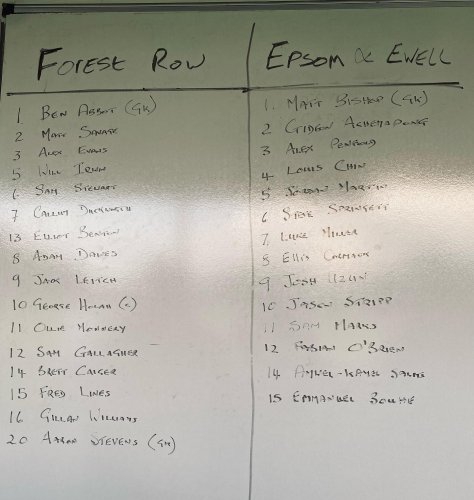 FOREST ROW
1 BEN ABBOT (GK)
2 MATT SAVAGE
3 ALEX EVANS
5 WILL IRWIN
6 SAM STEWART
7 CALLUM
13 ELLIOT BENTON
8 ADAM DAWES
9 JACK LEITCH
10 GEORGE (C)
11 OLLIE
12 SAM GALLAGHER
14 BRETT
15 FRED LINES
16 GILLAN WILLIAMS
20 AARON STEVENS (GK)
EPSOM & EWELL
1. MATT BISHOP (GK)
2 GIDEON ACHEMPONG
3 ALEX PENFOLD
4 LOUIS CHIN
5 JORDAN MARTIN
6 STEVE SPRINGETT
7 LUKE MILLER
8 ELLIS CORMACK
9 JOSH UZUN
10 JASON STRIPP
11 SAM MARKS
12 FABIAN O'BRIEN
14
15 EMMANUEL